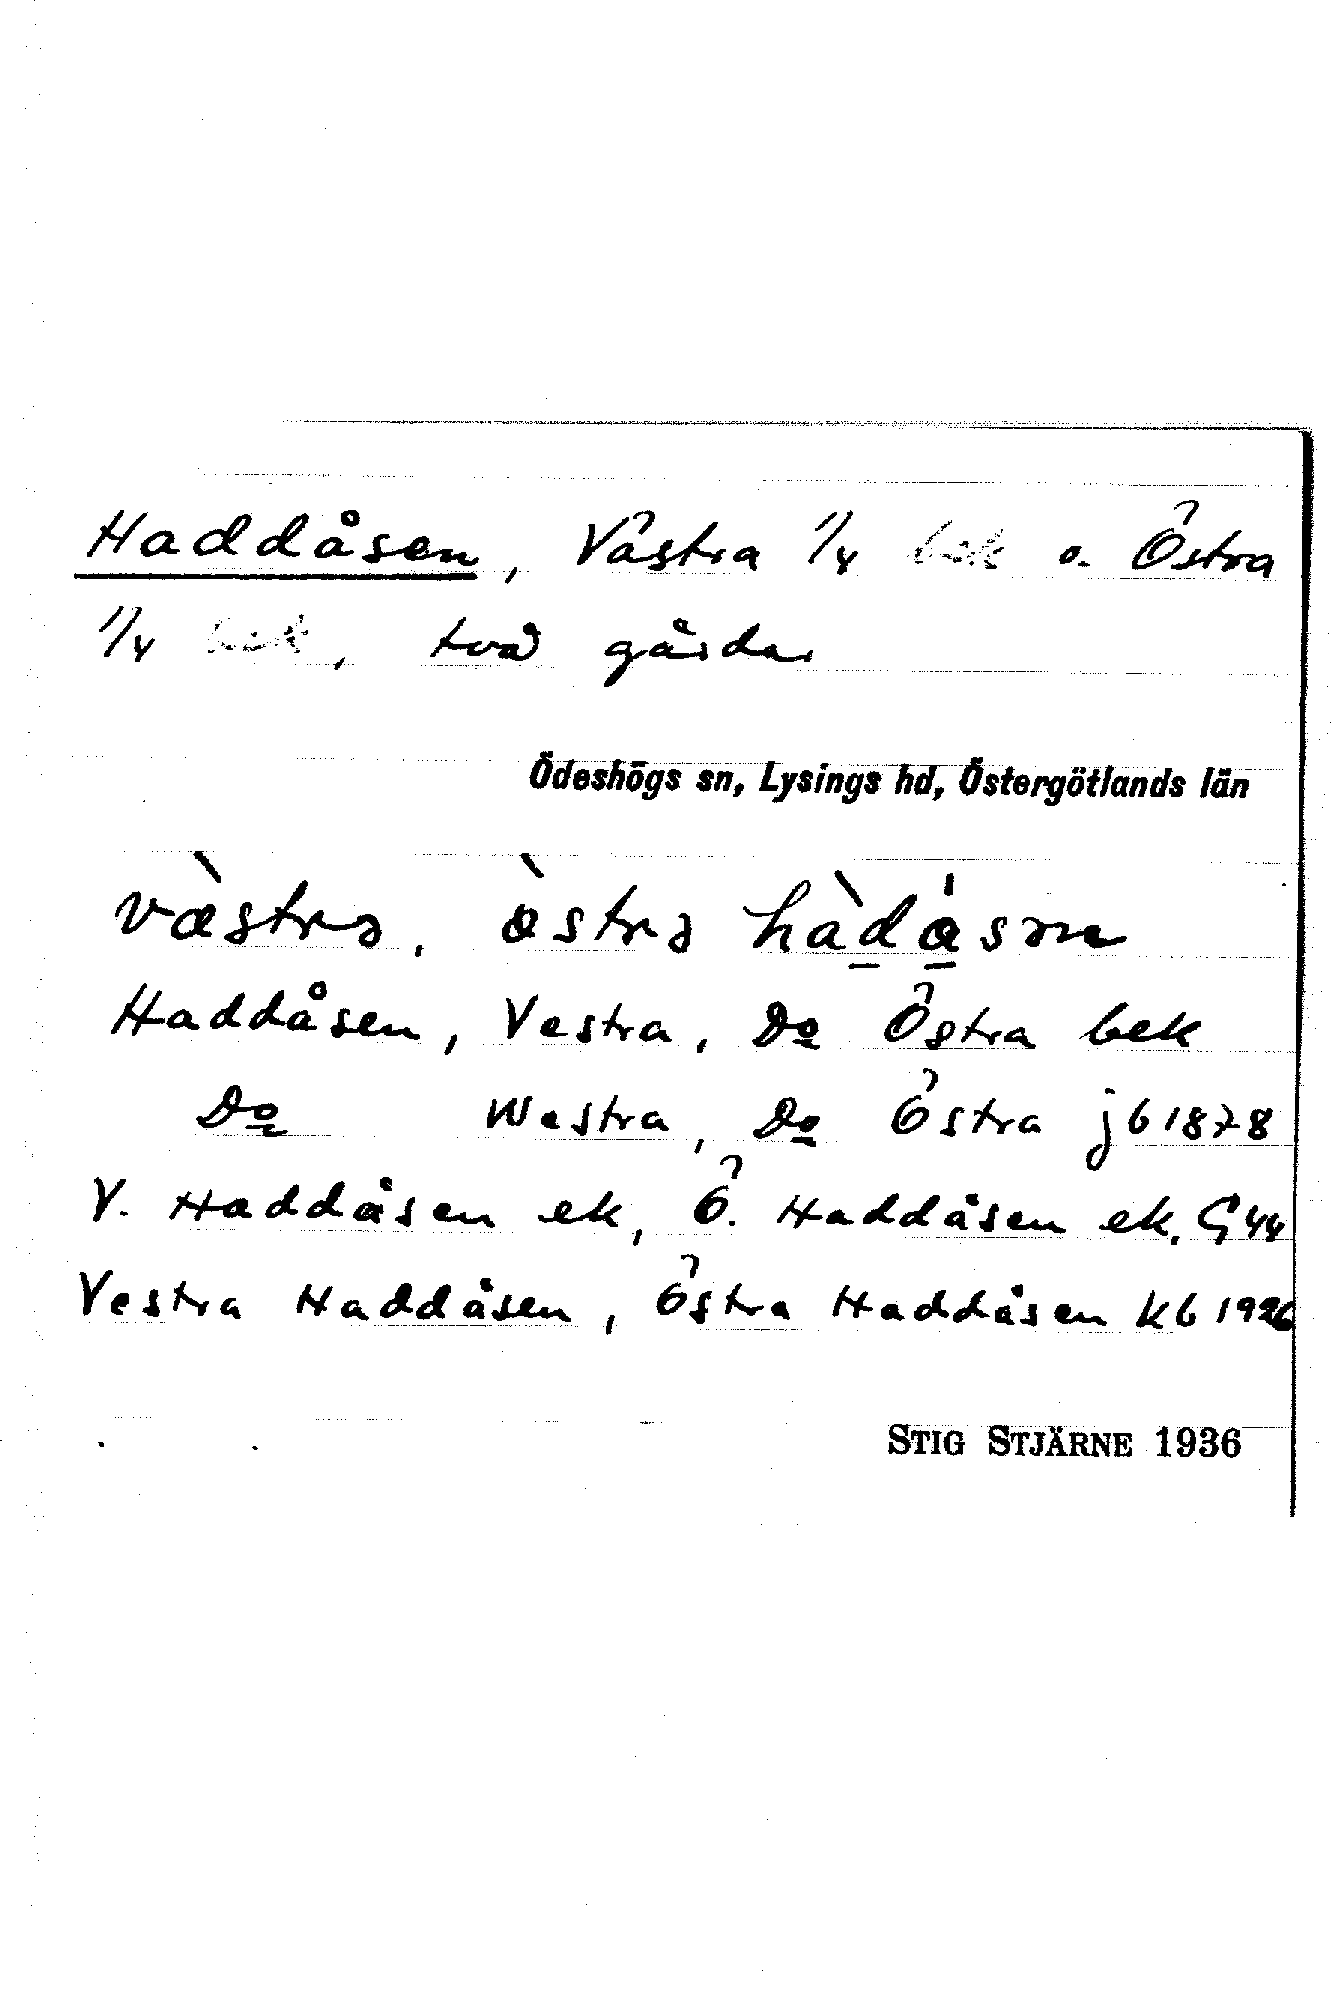 Haddåsen, Västra 1/4 bek o. Östra
1/4 bek, två gårdar
Ödeshögs sn, Lysings hd, Östergötlands län
Haddåsen, Vestra, Do Östra bek
Do Westra, Do Östra jb 1878
V. Haddåsen ek, Ö. Haddåsen ek. G44
Vestra Haddåsen, Östra Haddåsen kb 1926
STIG STJÄRNE 1936